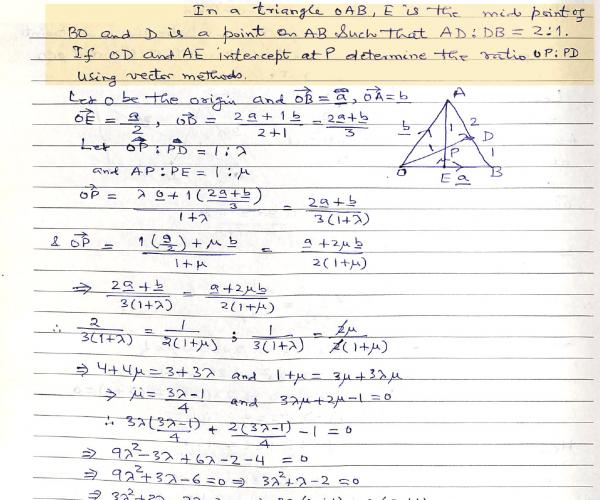 In a triangle OAB, E is the mid point of
BO and D is a point on AB such that AD:DB = 2:1.
If OD and AE intercept at P determine the ratio OP:PD
Using vector methods.
Let O be the origin and →OB = a, →OA = b
→OE = a/2, →OD = (2a + 1b)/(2+1) = (2a+b)/3
Let →OP : →PD = 1 : λ
and AP:PE = 1 : μ
→OP = (λ 0 + 1((2a+b)/3))/(1+λ) = (2a+b)/(3(1+λ))
& →OP = (1(a/2) + μ b)/(1+μ) = (a+2μb)/(2(1+μ))
⇒ (2a+b)/(3(1+λ)) = (a+2μb)/(2(1+μ))
∴ 2/(3(1+λ)) = 1/(2(1+μ)) ; 1/(3(1+λ)) = 2μ/(2(1+μ))
⇒ 4+4μ = 3+3λ and 1+μ = 3μ+3λμ
⇒ μ = (3λ-1)/4 and 3λμ+2μ-1 = 0
∴ 3λ(3λ-1)/4 + 2(3λ-1)/4 - 1 = 0
⇒ 9λ²-3λ+6λ-2-4 = 0
⇒ 9λ²+3λ-6 = 0 ⇒ 3λ²+λ-2 = 0
A
b
1
2
D
P
1
O
E
a
B